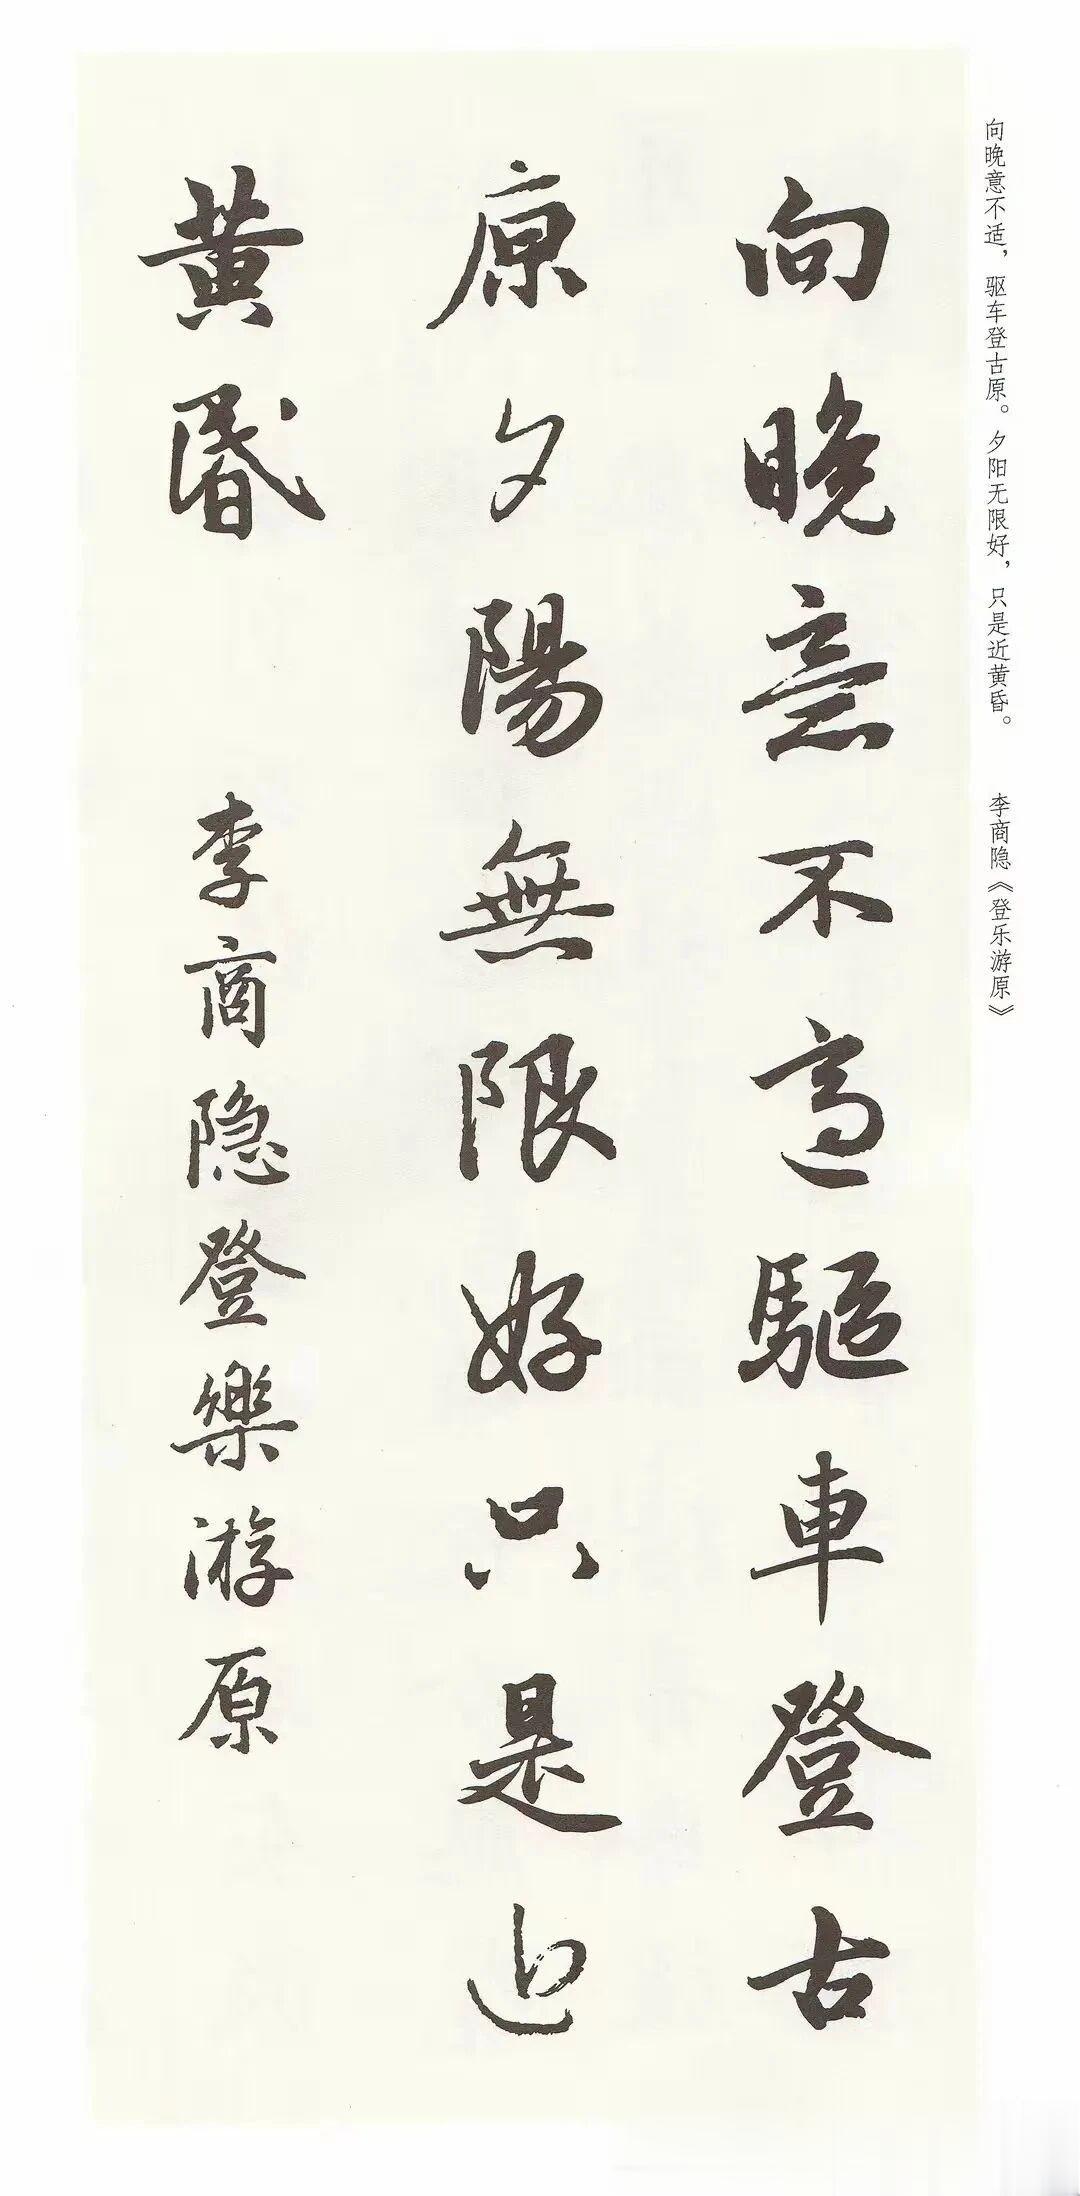 向晚意不适，驱车登古原。夕阳无限好，只是近黄昏。　李商隐《登乐游原》
向晚意不適驅車登古
原夕陽無限好只是近
黄昬
李商隐登樂游原